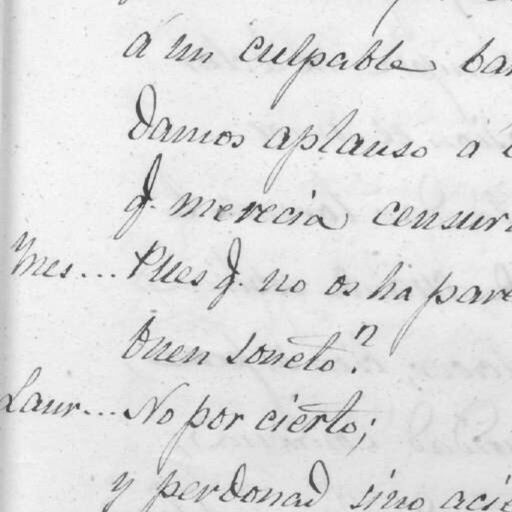 á un culpable
damos aplauso á
q. merecia censura
Ynes... Pues q. no os ha pare
buen soneto?
Laur... No por cierto;
y perdonad sino acie